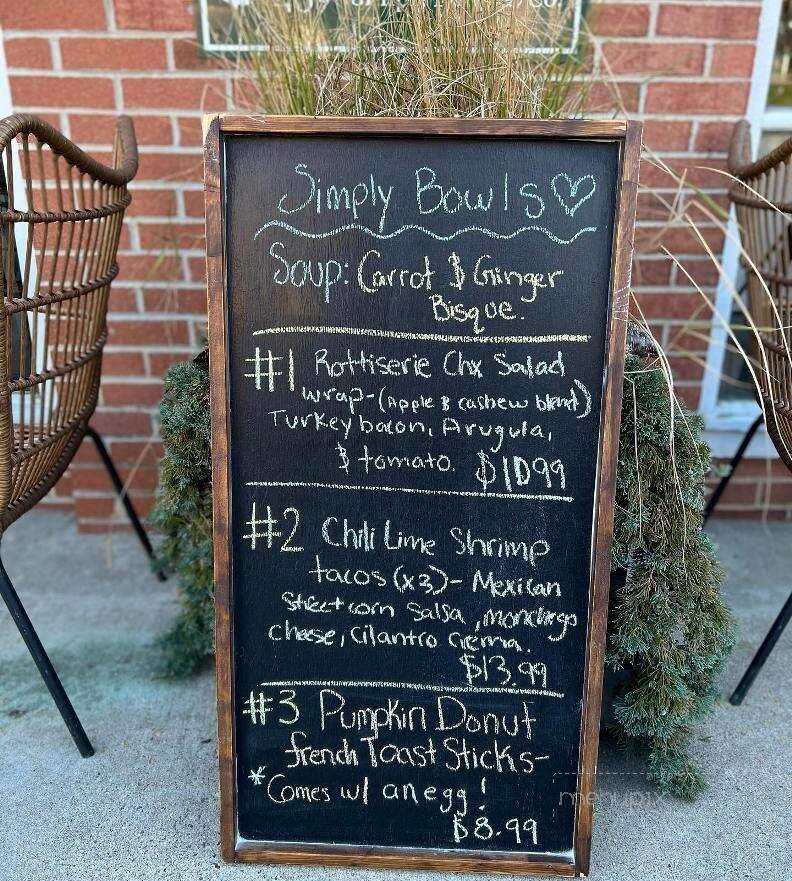 Simply Bowls
Soup: Carrot & Ginger
Bisque.
#1 Rottiserie Chx Salad
wrap-(Apple & cashew blend)
Turkey bacon, Arugula,
& tomato. $10.99
#2 Chili Lime Shrimp
tacos (x3)- Mexican
street corn salsa, monchego
cheese, cilantro crema.
$13.99
#3 Pumpkin Donut
french Toast Sticks-
*Comes w/ an egg!
$8.99
menupix